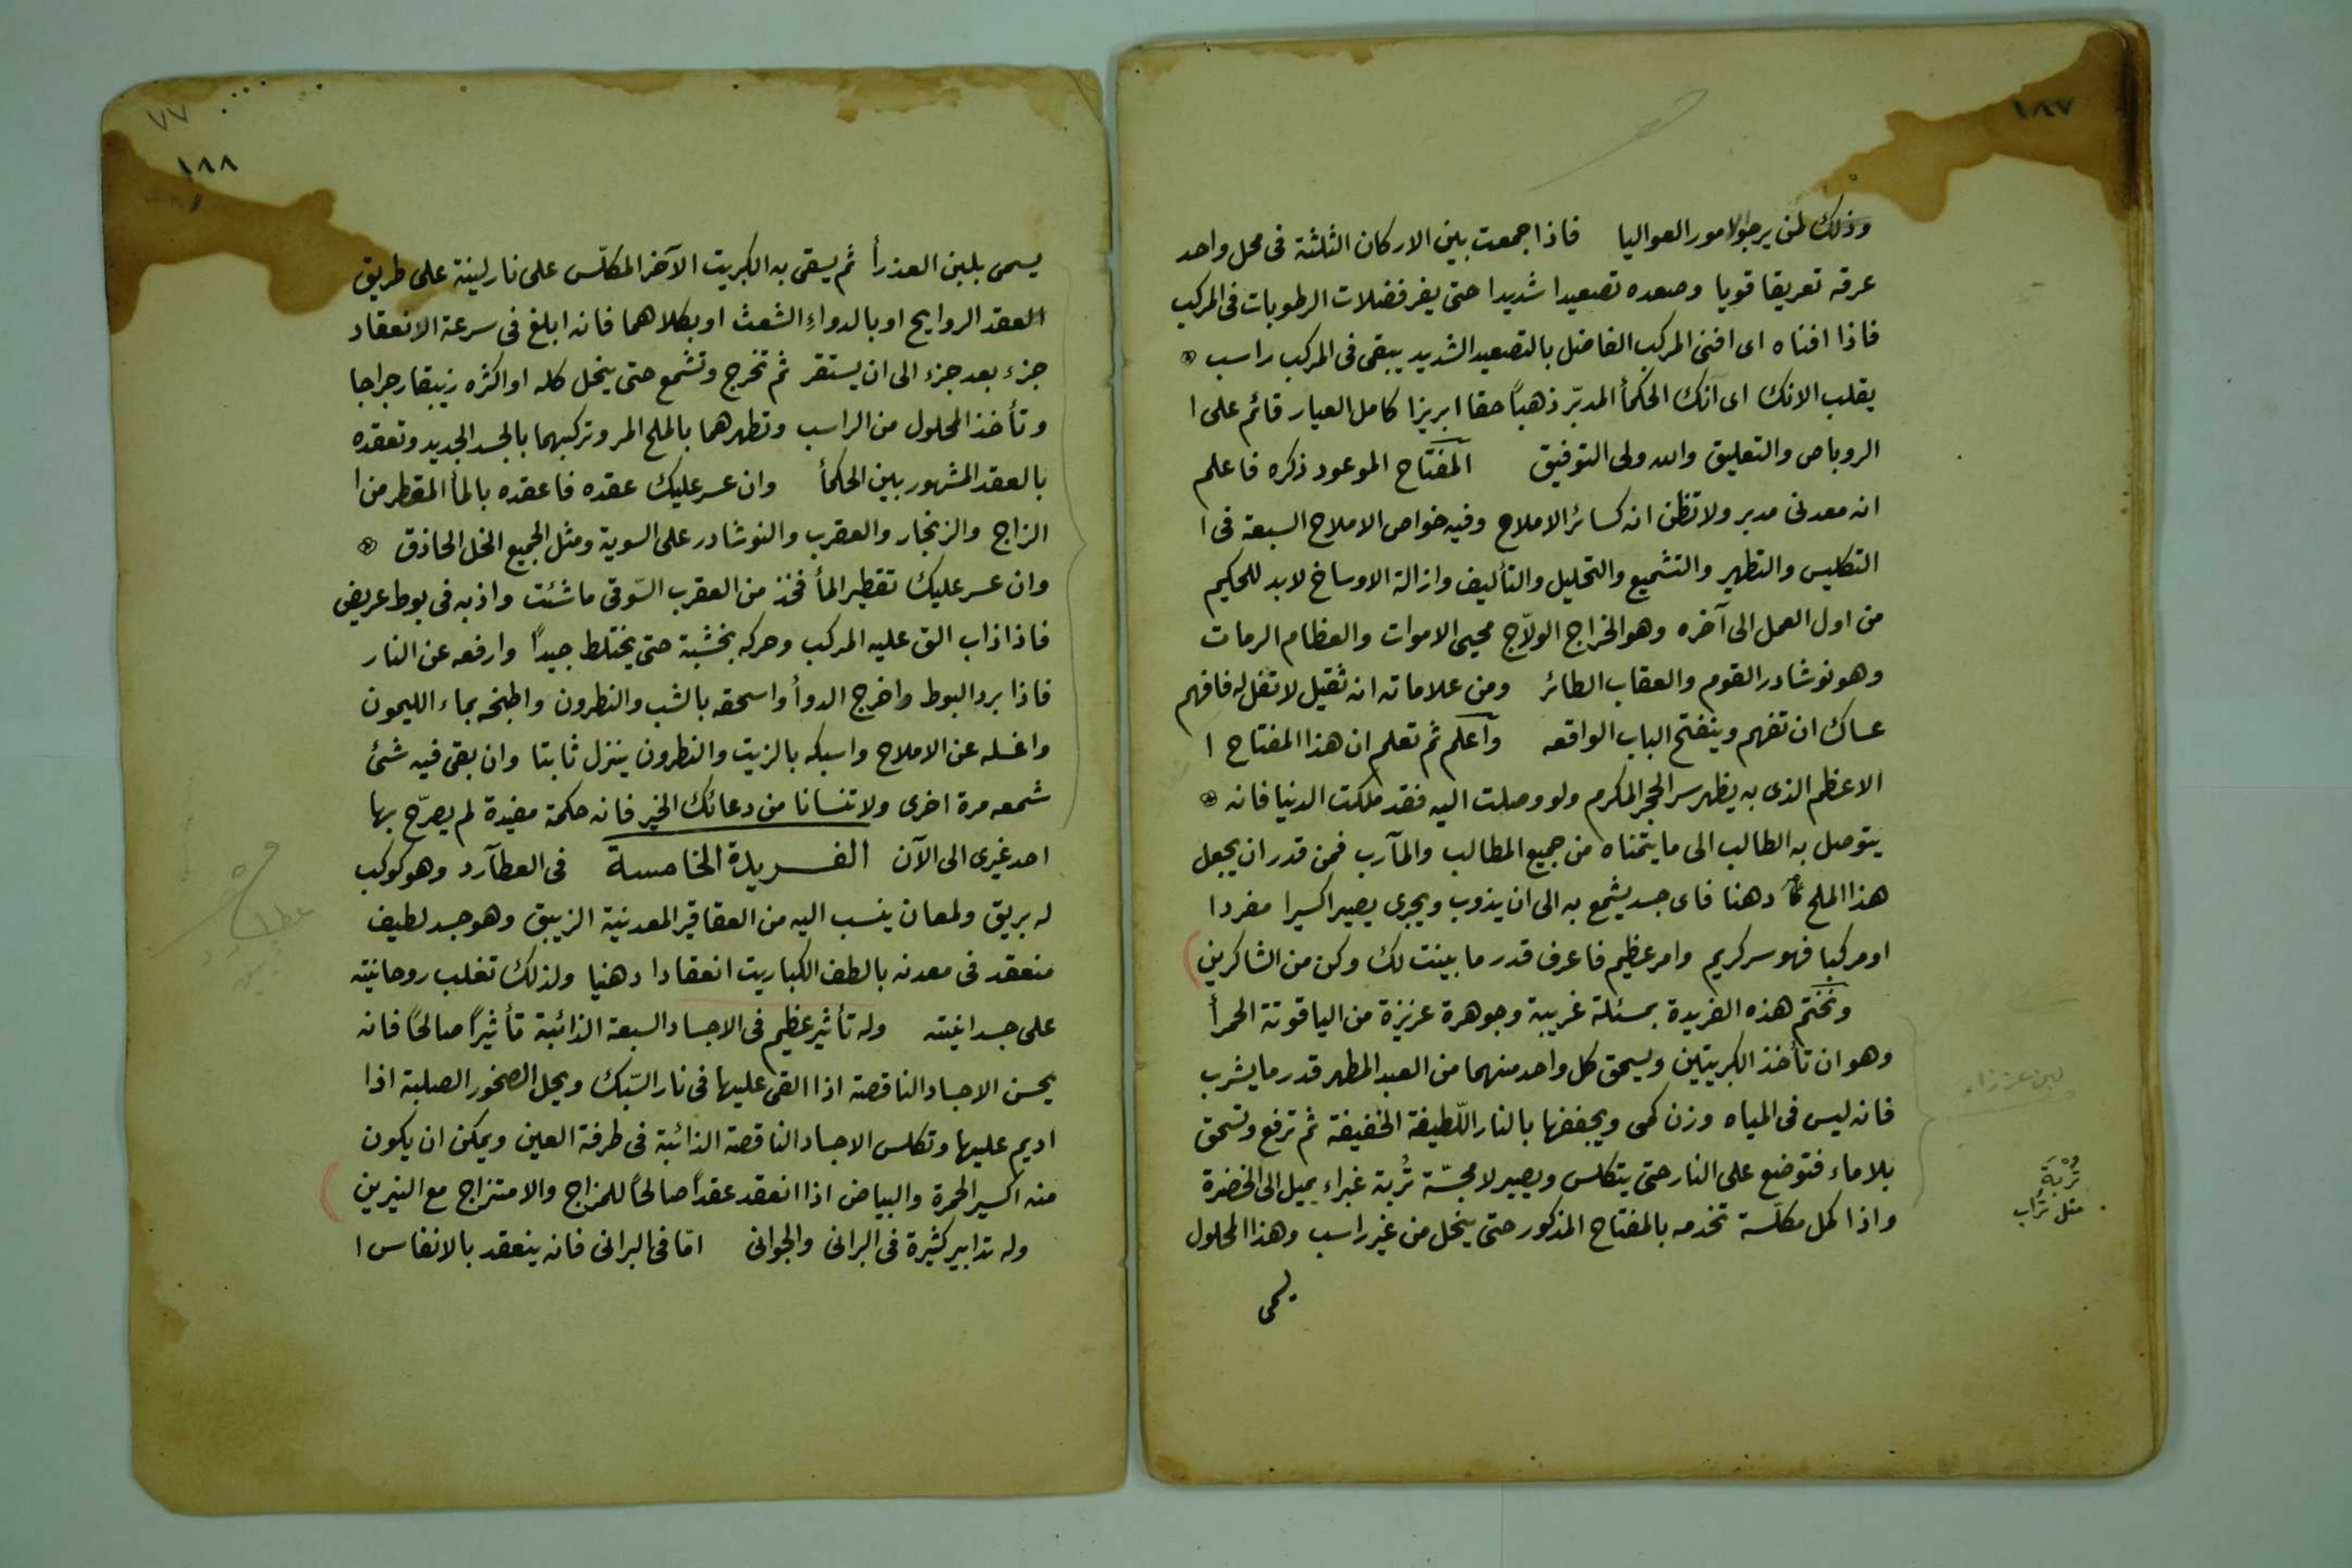 ١٨٧
وذلك لمن يرجو الامور العواليا فاذا جمعت بين الاركان الثلثة فى محل واحد
عرقه تعريقا قويا وصعده تصعيدا شديدا حتى يفر فضلات الرطوبات فى المركب
فاذا افناه اى افنى المركب الفاضل بالتصعيد الشديد يبقى فى المركب راسب
يقلب الانك اى آنك الحكمأ المدبّر ذهباً حقا ابريزا كامل العيار قائم على ا
الروباص والتعليق والله ولى التوفيق المفتاح الموعود ذكره فاعلم
انه معدنى مدبر ولا تظن انه كسائر الاملاح وفيه خواص الاملاح السبعة فى ا
التكليس والتطهير والتشميع والتحليل والتأليف وازالة الاوساخ لابد للحكيم
من اول العمل الى آخره وهو الخراج الولاّج محيى الاموات والعظام الرمات
وهو نوشادر القوم والعقاب الطائر ومن علاماته انه ثقيل لا تفل له فافهم
عساك ان تفهم وينفتح الباب الواقعه وآعلم ثم تعلم ان هذا المفتاح ا
الاعظم الذى به يظهر سر الحجر المكرم ولو وصلت اليه فقد ملكت الدنيا فانه
يتوصل به الطالب الى ما يتمناه من جميع المطالب والمآرب فمن قدر ان يجعل
هذا الملح دهنا فاى جسد يشمع به الى ان يذوب ويجرى يصير اكسيرا مفردا
او مركبا فهو سر كريم وامر عظيم فاعرف قدر ما بينت لك وكن من الشاكرين
ونختم هذه الفريدة بمسئلة غريبة وجوهرة عزيزة من الياقوتة الحمرأ
وهو ان تأخذ الكبريتين ويسحق كل واحد منهما من العبد المطهر قدر ما يشرب
فانه ليس فى المياه وزن كمى ويجففها بالنار اللّطيفة الخفيفة ثم ترفع وتسحق
بلا ماء فتوضع على النار حتى يتكلس ويصير لا مجسّة تُربة غبراء يميل الى الخضرة
واذا كمل مكلّسة تخدمه بالمفتاح المذكور حتى ينحل من غير راسب وهذا المحلول
يسمى
لبن عزرا
تُرْبَة
مثل تُراب
٧٧
١٨٨
يسمى بلبن العذرأ ثم يسقى به الكبريت الآخر المكلّس على نار لينة على طريق
العقد الروايح او بالدواء الشعث او بكلاهما فانه ابلغ فى سرعة الانعقاد
جزء بعد جزء الى ان يستقر ثم تخرج وتشمع حتى ينحل كله او اكثره زيبقا رجراجا
وتأخذ المحلول من الراسب وتطهرهما بالملح المر وتركبهما بالجسد الجديد وتعقده
بالعقد المشهور بين الحكمأ وان عسر عليك عقده فاعقده بالمأ المقطر من ا
الزاج والزنجار والعقرب والنوشادر على السوية ومثل الجميع الخل الحاذق
وان عسر عليك تقطير المأ فخذ من العقرب السّوقى ما شئت واذبه فى بوط عريض
فاذا ذاب الق عليه المركب وحركه بخشبة حتى يختلط جيداً وارفعه عن النار
فاذا برد البوط واخرج الدوأ واسحقه بالشب والنطرون واطبخه بماء الليمون
واغسله عن الاملاح واسبكه بالزيت والنطرون ينزل ثابتا وان بقى فيه شئ
شمعه مرة اخرى ولا تنسانا من دعائك الخير فانه حكمة مفيدة لم يصرّح بها
احد غيرى الى الآن الفريدة الخامسة فى العطآرد وهو كوكب
له بريق ولمعان ينسب اليه من العقاقير المعدنية الزيبق وهو جسد لطيف
منعقد فى معدنه بالطف الكباريت انعقادا دهنيا ولذلك تغلب روحانيته
على جسدانيته وله تأثير عظيم فى الاجساد السبعة الذائبة تأثيراً صالحاً فانه
يحسن الاجساد الناقصة اذا القى عليها فى نار السّبك ويحل الصخور الصلبة اذا
اديم عليها وتكلس الاجساد الناقصة الذائبة فى طرفة العين ويمكن ان يكون
منه اكسير الحمرة والبياض اذا انعقد عقداً صالحاً للمزاج والامتزاج مع النيرين
وله تدابير كثيرة فى البرانى والجوانى امّا فى البرانى فانه ينعقد بالانفاس ا
عطارد